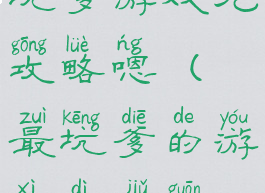 gōng lüè ńg
攻略嗯（
zuì kēng diē de yóu
最坑爹的游
xì dì jiǔ guān